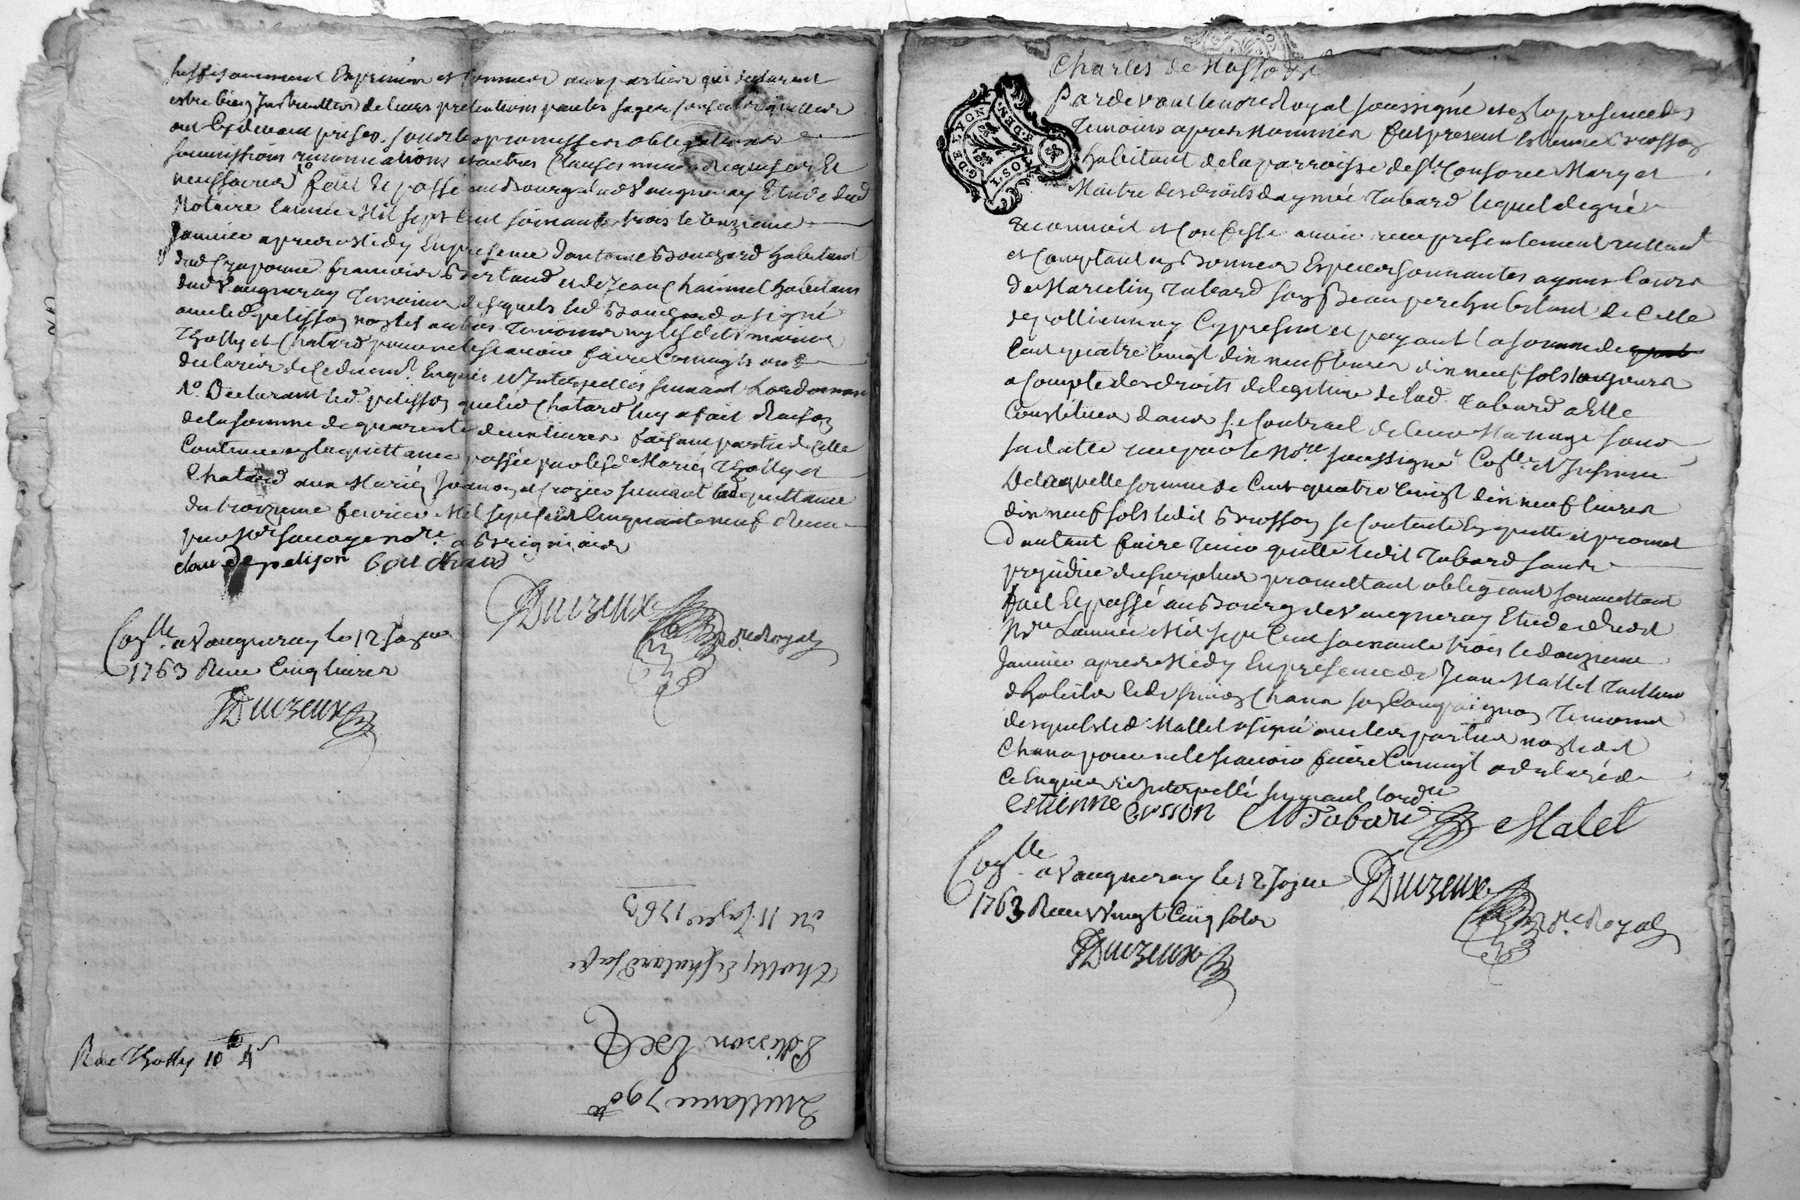 suffisamment Exprimée et connues aux parties qui declarent
estre bien Instruittes de leurs pretentions par les sages
ont Cydevant prises, sous les promesses obligations
soumissions renonciations et autres Clauses requises Et
necessaires fait Et passé au Bourg dud Vaugneray Etude dud
Notaire L'année Mil sept Cent soixante trois le onzieme
Janvier apres midy En presence d'antoine Bouchard habitant
dud Craponne francois Bertaud et de Jean Chainel habitans
dud Vaugneray Temoins desquels led Bouchard a signé
avec led pelisson non led autres Temoins ny lesd mariés
Tholly et Chatard pour ne le scavoir faire Comme ils ont
declarés de Ce duement Enquis et Interpellés suivant L'ordonnance
Declarant led pelisson que led Chatard luy a fait Raison
de la somme de quarente deux livres faisant partie de Celle
Contenue en la quittance passée par lesd Mariés Tholly et
Chatard aux Mariés et Crozier suivant la quittance
du troizieme fevrier Mil sept Cent Cinquante neuf Receue
par Me Sauvage nore a Brignais
claude pelison bouchard
DuCreux
No.re Royal
Con.lle a Vaugneray le 12 Jan.er
1763 Receu Cinq livres
DuCreux
R de Tholly 10
Du 11 Janv.er 1763
Tholly et Chatard sa fe
Pelisson
Quittance 790
Charles de Masso
Pardevant le no.re Royal soussigné et en la presence des
Temoins apres nommés fut present Estienne Brosson
habitant de la parroisse de St. Consorce Mary et
Maitre des droits d'aymée Tabard lequel de gré
reconnoit et Confesse avoir receu presentement reellement
et Comptant en Bonnes Especes sonnantes ayant Cours
de Marcelin Tabard son Beau pere habitant de Celle
de pollionnay Cy present et payant la somme de
Cent quatre vingt dix neuf livres dix neuf sols
a compte des droits de legitime de lad. Tabard a Elle
Constitués dans le Contract de leur Mariage sous
sa datte receu par le No.re soussigné Con.llé et Insinué
De laquelle somme de Cent quatre vingt dix neuf livres
dix neuf sols ledit Brosson se Contente En quitte et promet
D'autant faire Tenir quitte ledit Tabard sans
prejudice du surplus promettant obligeant soumettant
Fait Et passé au Bourg de Vaugneray Etude dudit
No.re L'année Mil sept Cent soixante trois le douzieme
Janvier apres Midy En presence de Jean Mallet Tailleur
d'habits et de Chana son Compagnon Temoins
desquels led Mallet a signé avec les parties non led
Chana pour ne le scavoir faire Comme il a declaré de
Ce Enquis et Interpellé suyvant L'ord.ce
estienne brosson M Tabard Malet
Con.lle a Vaugneray le 12 Jan.er
1763 Receu Vingt Cinq sols
DuCreux
DuCreux
No.re Royal